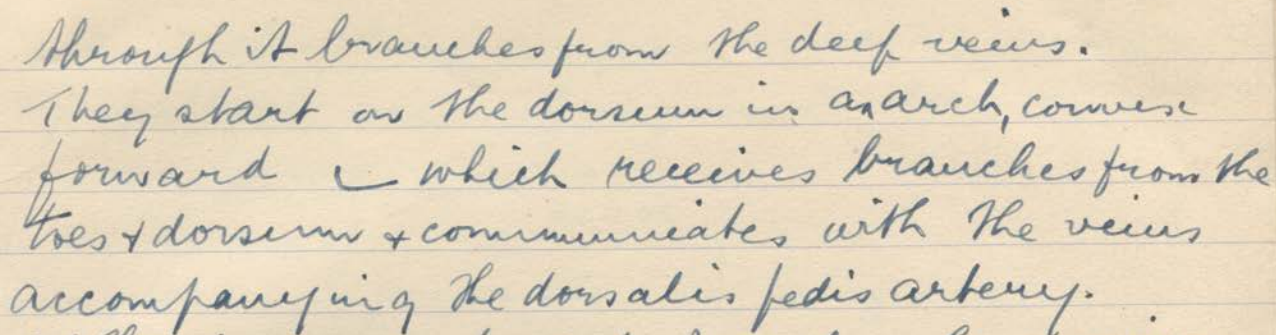 through it branches from the deep veins.
They start on the dorsum in an arch, convex
forward which receives branches from the
toes + dorsum + communicates with the veins
accompanying the dorsalis pedis artery.